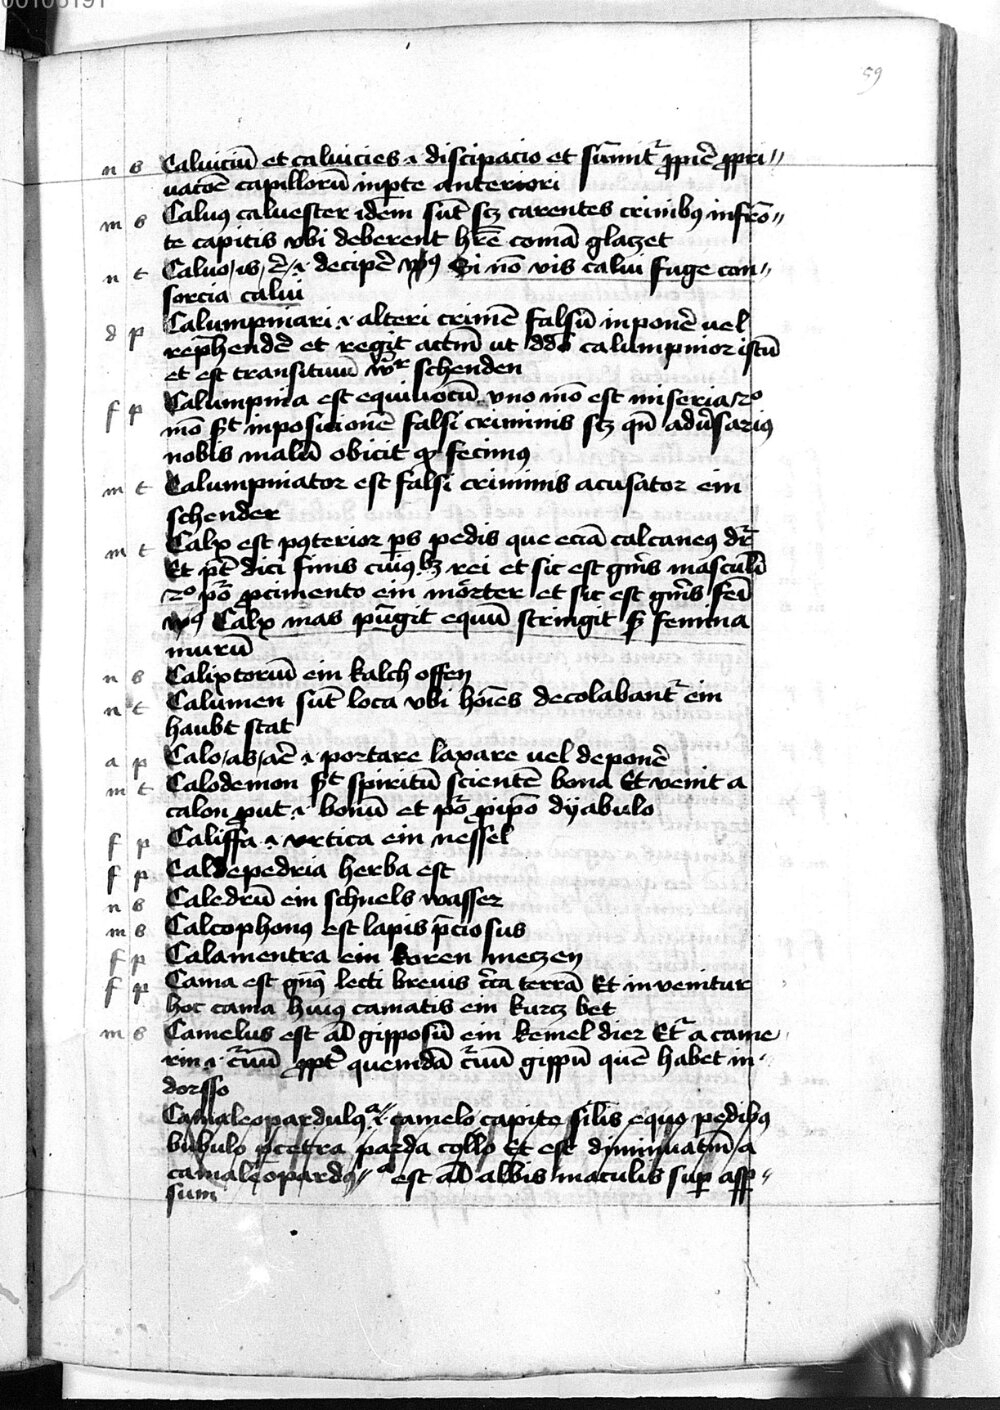 59
n s Caluiciū et caluicies .i. discipacio et sūmit᷑ ꝓpͥe ꝓpri//
uacōe capillorū inpte anteriori
m s Caluꝯ caluester idem sūt scꝫ carentes crinibꝯ infrō//
te capitis vbi deberent hr̄e comā glaczet
n t Caluo/is/ē/.i. decipe᷑ vꝰꝯ Si nō vis calui fuge con//
sorcia calui
d p Calumpniari .i. alteri crimē falsū inponē uel
rep̄hendē et regit actm̄ ut ddo calumpnior istū
et est transitiuū schenden
f p Calumpnia est equiuocū vno mō est miseria 2o
mō sꝫ inposicionē falsi criminis scꝫ qn̄ adūsarius
nobis malū obicit qꝫ fecimꝯ
m t Calumpniator est falsi criminis acusator ein
schender
m t Calx est pꝯterior ps pedis que eciā calcaneꝯ dr̄
Et pt̄ dici finis cuiꝯ bꝫ rei et sic est gn̄is masculi
2o pͦ ꝓ cimento ein mörter et sic est gn̄is fēi
vꝰꝯ Calx mas pūgit equū stringit sꝫ femina
murū
n s Calixtoriū ein kalch offen
n t Calumen sūt loca vbi hoīes decolabant᷑ ein
haubt stat
a p Calo/as/are .i. portare laxare uel deponē
m t Calodemon sꝫ spiritū scientē bona Et venit a
calon ꝓut .i. bonū et po᷑ ꝓ ipo dyabulo
f p Califfa .i. vrtica ein nessel
f p Caldepedria herba est
n s Caledrū ein schnels wasser
m s Calcophonꝯ est lapis p̄ciosus
f p Calamentra ein koren meczen
f p Cama est gnꝯ lecti breuis c᷑ca terrā Et inuenitur
hoc cama huiꝯ camatis ein kurcz bet
m s Camelus est āl gipposū ein kemel dier Et᷑ a came
rin .i. c᷑uū ꝓpt᷑ quendā c᷑uū gippū quē habet in
dorsso
Camaleopardulꝯ a .i. camelo capite silis equo pedibꝯ
bubulo petra parda collo Et est diminuatm̄ a
camaleopardꝯ // a est āl albis maculis sup asp//
sum